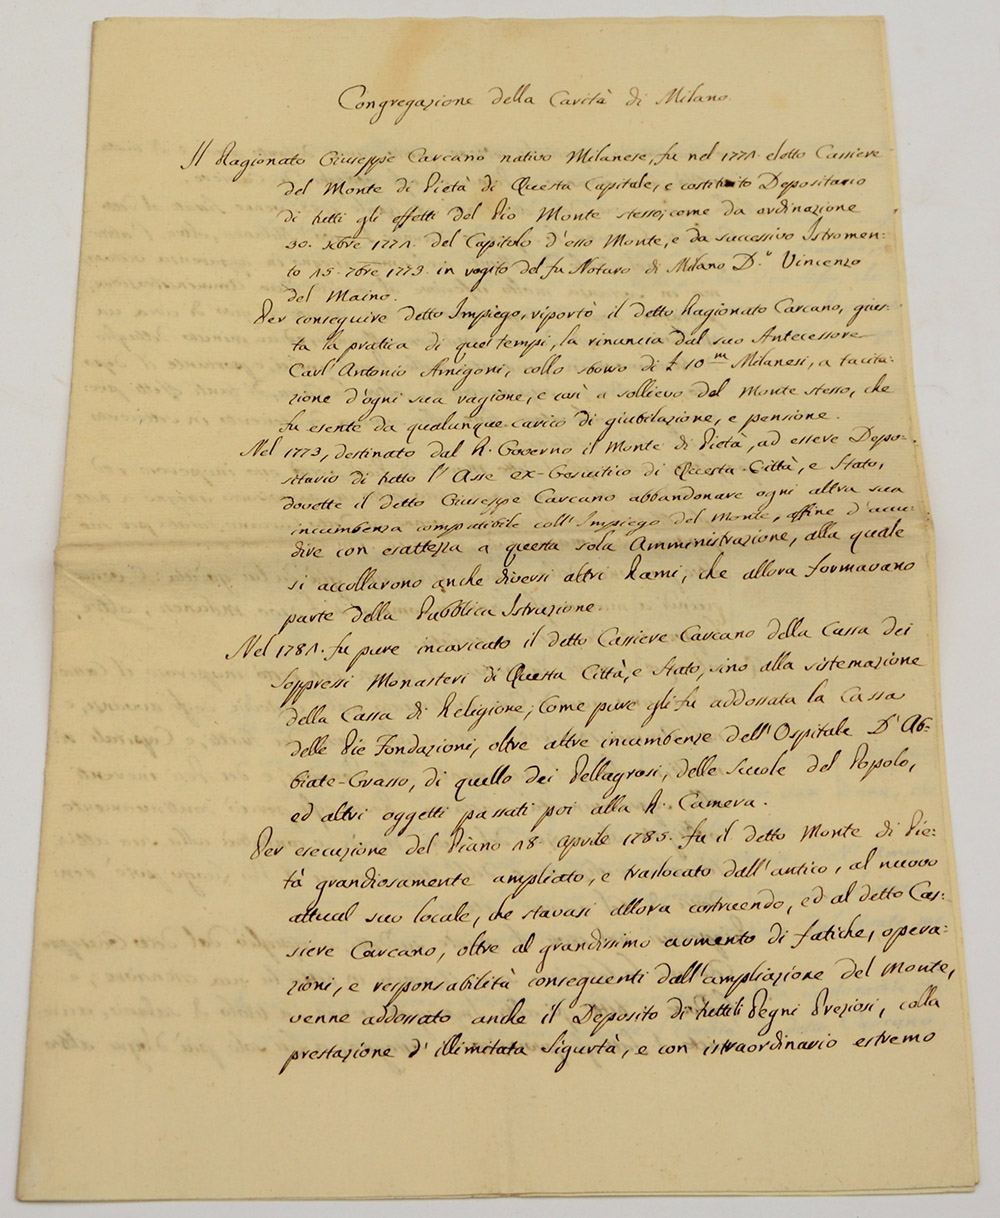 Congregazione della Carità di Milano.
Il Ragionato Giuseppe Carcano nativo Milanese, fu nel 1771. eletto Cassiere
del Monte di Pietà di Questa Capitale, e costituito Depositario
di tutti gli effetti del Pio Monte stesso, come da ordinazione
30. xbre 1771. del Capitolo d'esso Monte, e da successivo Istromen:
to 15. 7bre 1773. in rogito del fu Notaro di Milano D.n Vincenzo
del Maino.
Per conseguire detto Impiego, riportò il detto Ragionato Carcano, gius:
ta la pratica di que' tempi, la rinuncia dal suo Antecessore
Carl' Antonio Arrigoni, collo sborso di £ 10m Milanesi, a tacita:
zione d'ogni sua ragione, e così a sollievo del Monte stesso, che
fu esente da qualunque carico di giubilazione, e pensione.
Nel 1773, destinato dal R. Governo il Monte di Pietà, ad essere Depo:
sitario di tutto l'Asse ex-Gesuitico di Questa Città, e Stato,
dovette il detto Giuseppe Carcano abbandonare ogni altra sua
incumbenza compatibile coll'Impiego del Monte, affine d'accu:
dire con esattezza a questa sola Amministrazione, alla quale
si accollarono anche diversi altri Rami, che allora formavano
parte della Pubblica Istruzione.
Nel 1781. fu pure incaricato il detto Cassiere Carcano della Cassa dei
Soppressi Monasteri di Questa Città, e Stato, sino alla sistemazione
della Cassa di Religione; Come pure gli fu addossata la Cassa
delle Pie Fondazioni, oltre altre incumbenze dell'Ospitale D'Ab:
biate-Grasso, di quello dei Pellagrosi, delle Scuole del Popolo,
ed altri oggetti passati poi alla R. Camera.
Per esecuzione del Piano 18. aprile 1785. fu il detto Monte di Pie:
tà grandiosamente ampliato, e traslocato dall'antico, al nuovo
attual suo locale, che stavasi allora costruendo, ed al detto Cas:
siere Carcano, oltre al grandissimo aumento di fatiche, opera:
zioni, e responsabilità conseguenti dall'ampliazione del Monte,
venne addossato anche il Deposito di tutti li Pegni Preziosi, colla
prestazione d'illimitata Sigurtà, e con istraordinario estremo